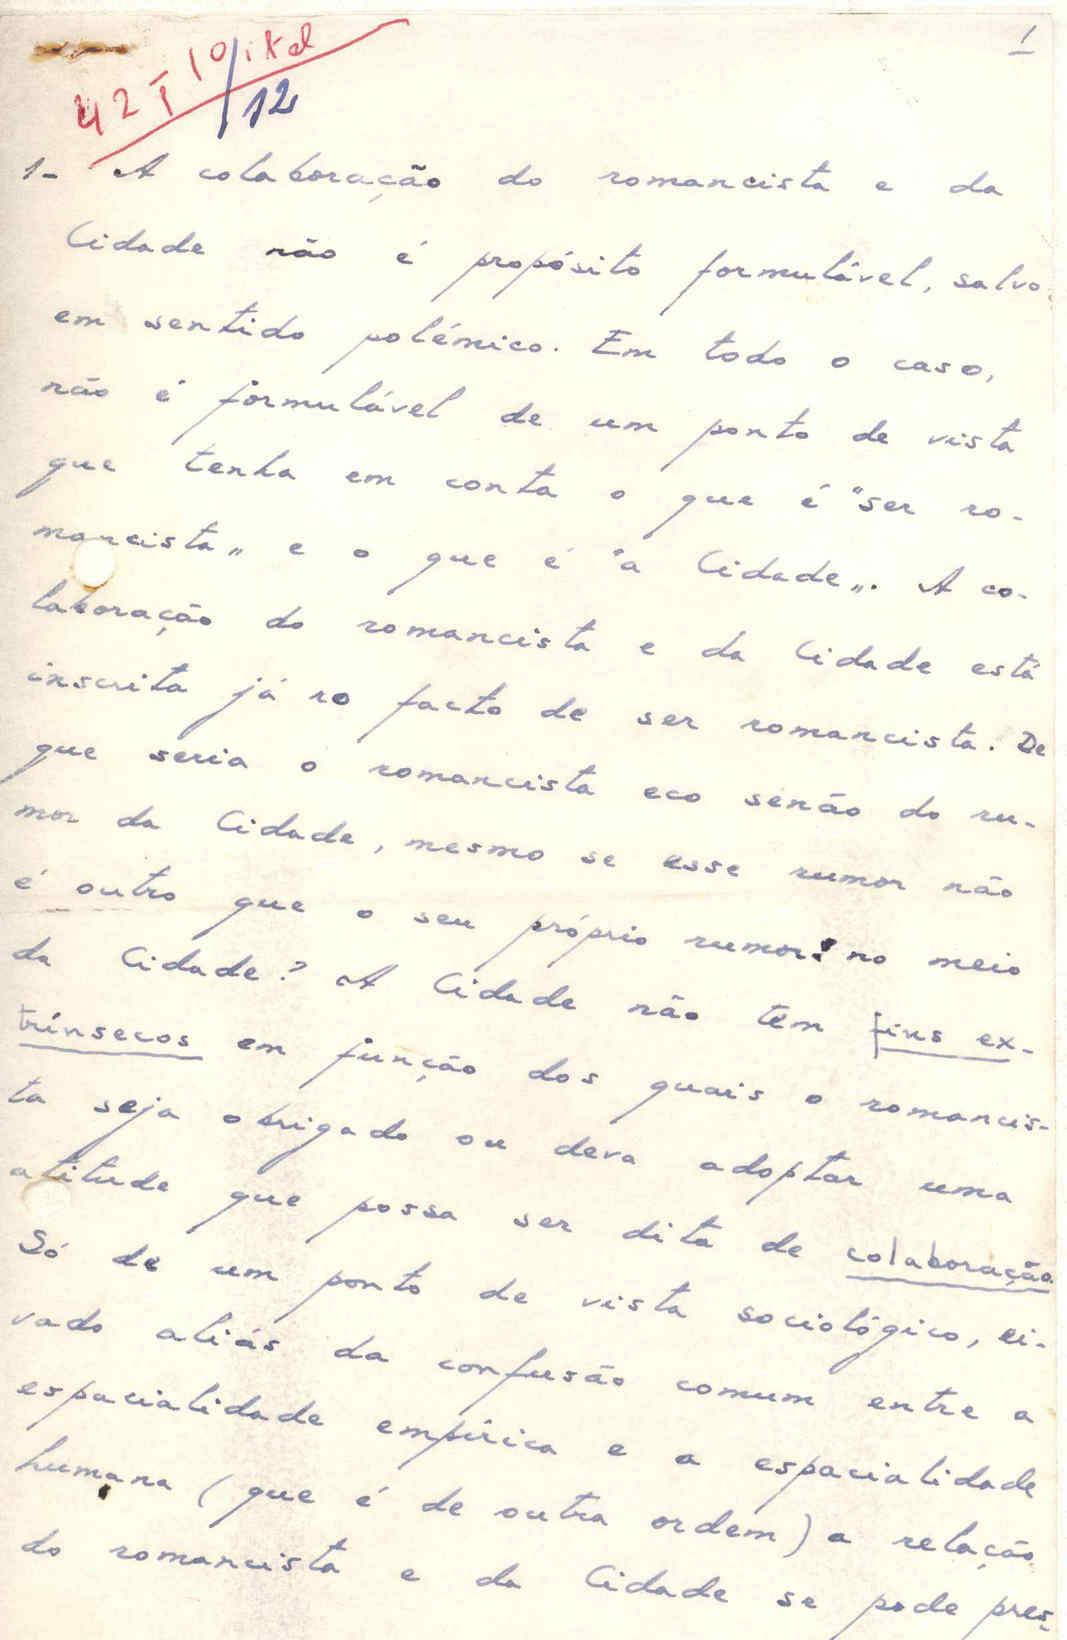 1
42 I 10/ital
12
1- A colaboração do romancista e da
Cidade não é propósito formulável, salvo
em sentido polémico. Em todo o caso,
não é formulável de um ponto de vista
que tenha em conta o que é "ser ro-
mancista" e o que é "a Cidade". A co-
laboração do romancista e da Cidade está
inscrita já no facto de ser romancista. De
que seria o romancista eco senão do ru-
mor da Cidade, mesmo se esse rumor não
é outro que o seu próprio rumor no meio
da Cidade? A Cidade não tem fins ex-
trínsecos em função dos quais o romancis-
ta seja obrigado ou deva adoptar uma
atitude que possa ser dita de colaboração.
Só de um ponto de vista sociológico, ei-
vado aliás da confusão comum entre a
espacialidade empírica e a espacialidade
humana (que é de outra ordem) a relação
do romancista e da Cidade se pode pres-